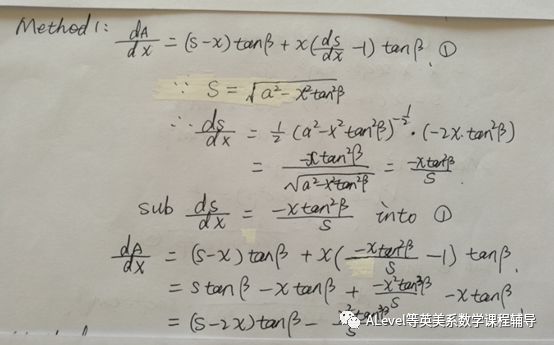 Method 1: dA/dx = (s-x) tanβ + x(ds/dx - 1) tanβ. ①
∵ S = √(a² - x²tan²β)
∴ ds/dx = 1/2 (a² - x²tan²β)^(-1/2) · (-2x·tan²β)
= -xtan²β/√(a²-x²tan²β) = -xtan²β/S
sub ds/dx = -xtan²β/S into ①
dA/dx = (s-x) tanβ + x(-xtan²β/S - 1) tanβ.
= stanβ - xtanβ + -x²tan³β/S - xtanβ
= (s-2x)tanβ - x²tan³β/S
ALevel等英美系数学课程辅导